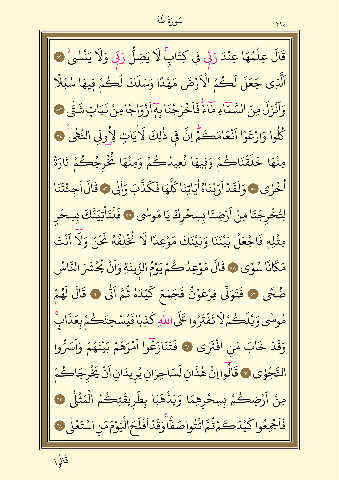 سُورَةُ طٰهٰ
٣١٤
قَالَ عِلْمُهَا عِنْدَ رَبّ۪ي ف۪ي كِتَابٍۚ لَا يَضِلُّ رَبّ۪ي وَلَا يَنْسٰىۘ ﴿٥٢﴾
اَلَّذ۪ي جَعَلَ لَكُمُ الْاَرْضَ مَهْدًا وَسَلَكَ لَكُمْ ف۪يهَا سُبُلًا
وَاَنْزَلَ مِنَ السَّمَٓاءِ مَٓاءًۜ فَاَخْرَجْنَا بِه۪ٓ اَزْوَاجًا مِنْ نَبَاتٍ شَتّٰى ﴿٥٣﴾
كُلُوا وَارْعَوْا اَنْعَامَكُمْۜ اِنَّ ف۪ي ذٰلِكَ لَاٰيَاتٍ لِاُو۬لِي النُّهٰى۟ ﴿٥٤﴾
مِنْهَا خَلَقْنَاكُمْ وَف۪يهَا نُع۪يدُكُمْ وَمِنْهَا نُخْرِجُكُمْ تَارَةً
اُخْرٰى ﴿٥٥﴾ وَلَقَدْ اَرَيْنَاهُ اٰيَاتِنَا كُلَّهَا فَكَذَّبَ وَاَبٰى ﴿٥٦﴾ قَالَ اَجِئْتَنَا
لِتُخْرِجَنَا مِنْ اَرْضِنَا بِسِحْرِكَ يَا مُوسٰى ﴿٥٧﴾ فَلَنَأْتِيَنَّكَ بِسِحْرٍ
مِثْلِه۪ فَاجْعَلْ بَيْنَنَا وَبَيْنَكَ مَوْعِدًا لَا نُخْلِفُهُ نَحْنُ وَلَٓا اَنْتَ
مَكَانًا سُوًى ﴿٥٨﴾ قَالَ مَوْعِدُكُمْ يَوْمُ الزّ۪ينَةِ وَاَنْ يُحْشَرَ النَّاسُ
ضُحًى ﴿٥٩﴾ فَتَوَلّٰى فِرْعَوْنُ فَجَمَعَ كَيْدَهُ ثُمَّ اَتٰى ﴿٦٠﴾ قَالَ لَهُمْ
مُوسٰى وَيْلَكُمْ لَا تَفْتَرُوا عَلَى اللّٰهِ كَذِبًا فَيُسْحِتَكُمْ بِعَذَابٍۚ
وَقَدْ خَابَ مَنِ افْتَرٰى ﴿٦١﴾ فَتَنَازَعُٓوا اَمْرَهُمْ بَيْنَهُمْ وَاَسَرُّوا
النَّجْوٰى ﴿٦٢﴾ قَالُٓوا اِنْ هٰذَانِ لَسَاحِرَانِ يُر۪يدَانِ اَنْ يُخْرِجَاكُمْ
مِنْ اَرْضِكُمْ بِسِحْرِهِمَا وَيَذْهَبَا بِطَر۪يقَتِكُمُ الْمُثْلٰى ﴿٦٣﴾
فَاَجْمِعُوا كَيْدَكُمْ ثُمَّ ائْتُوا صَفًّاۚ وَقَدْ اَفْلَحَ الْيَوْمَ مَنِ اسْتَعْلٰى ﴿٦٤﴾
قَالُوا